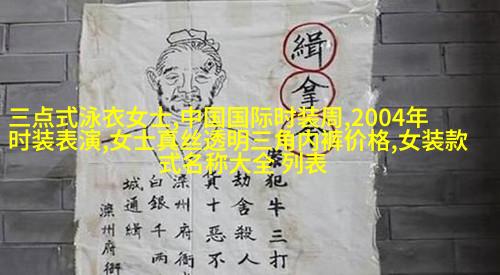 三点式泳衣女士,中国国际时装周,2004年
时装表演,女士真丝透明三角内裤价格,女装款
式名称大全 列表
緝拿
犯牛三打
劫舍殺人
真十惡不
滦州府衙
白銀千两
城通緝
滦州府衙